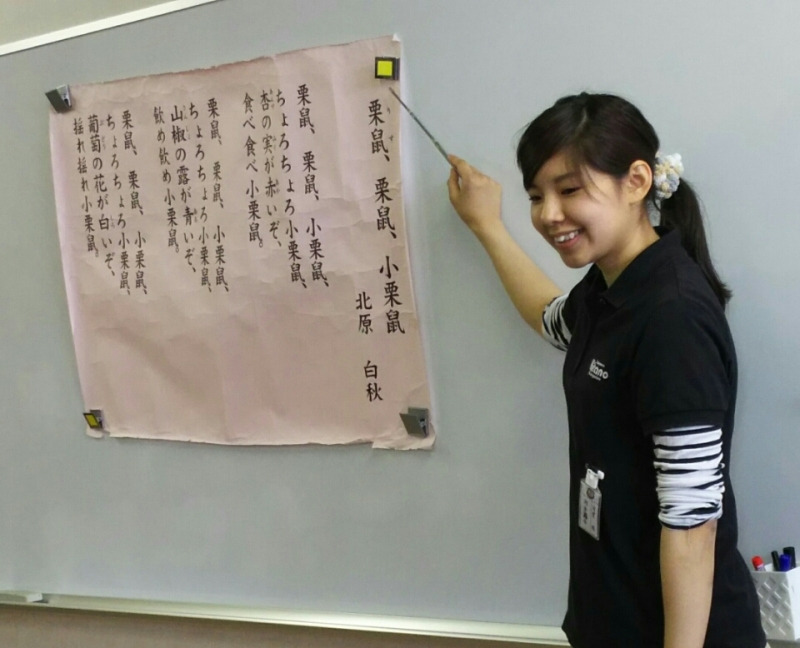 栗鼠、栗鼠、小栗鼠
北原 白秋
栗鼠、栗鼠、小栗鼠、
ちょろちょろ小栗鼠、
杏の実が赤いぞ、
食べ食べ小栗鼠。
栗鼠、栗鼠、小栗鼠、
ちょろちょろ小栗鼠、
山椒の露が青いぞ、
飲め飲め小栗鼠。
栗鼠、栗鼠、小栗鼠、
ちょろちょろ小栗鼠、
葡萄の花が白いぞ、
揺れ揺れ小栗鼠。